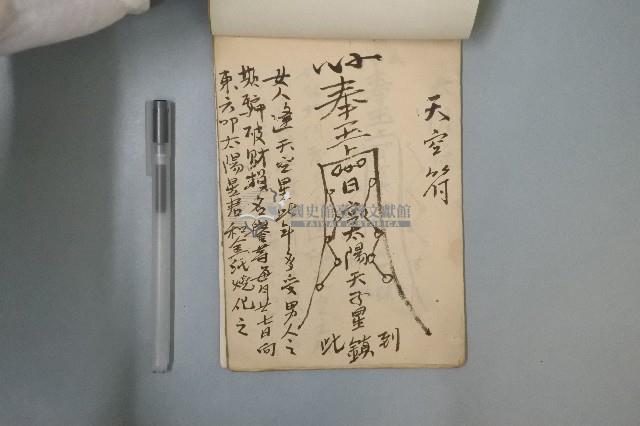 天空符
奉玉旨日宮太陽天子星鎮到此
女人逢天空星此年多受男人之
欺騙破財損名譽者每月廿七日向
東六叩太陽星君利金紙燒化之
國史館臺灣文獻館
TAIWAN HISTORICA